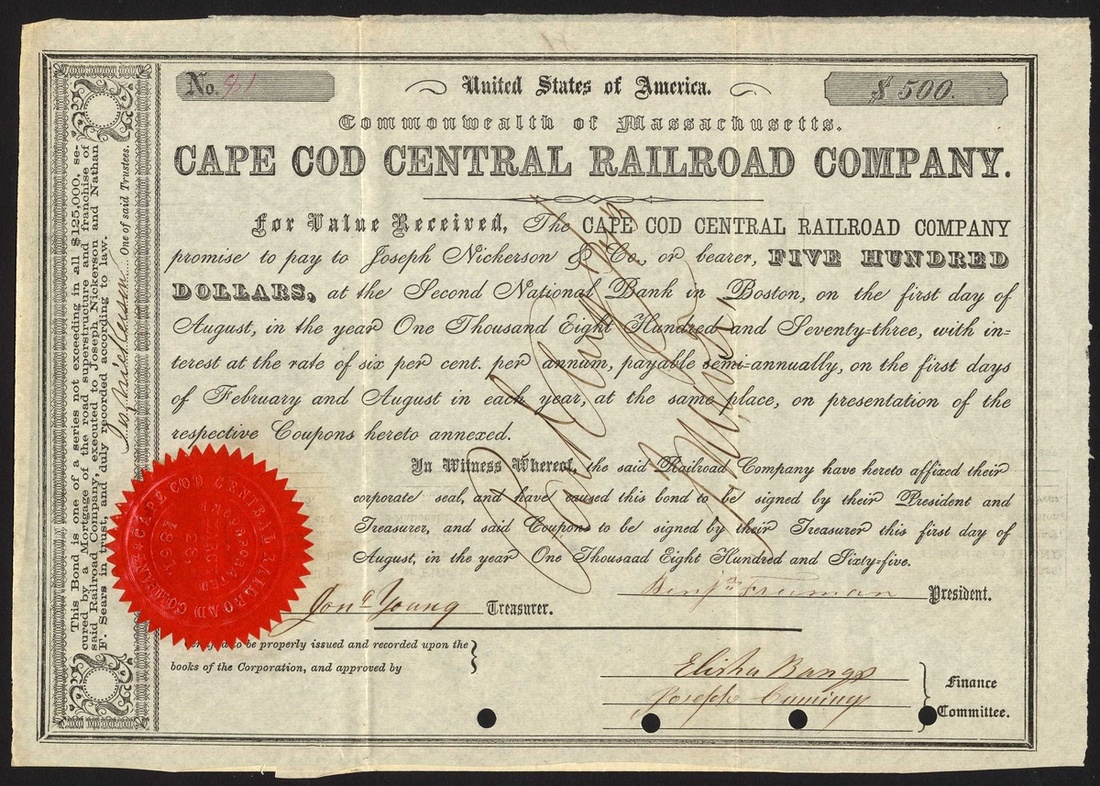 No. 91
United States of America.
$ 500.
Commonwealth of Massachusetts.
CAPE COD CENTRAL RAILROAD COMPANY.
For Value Received, The CAPE COD CENTRAL RAILROAD COMPANY
promise to pay to Joseph Nickerson & Co., or bearer, FIVE HUNDRED
DOLLARS, at the Second National Bank in Boston, on the first day of
August, in the year One Thousand Eight Hundred and Seventy-three, with in-
terest at the rate of six per cent. per annum, payable semi-annually, on the first days
of February and August in each year, at the same place, on presentation of the
respective Coupons hereto annexed.
In Witness Whereof, the said Railroad Company have hereto affixed their
corporate seal, and have caused this bond to be signed by their President and
Treasurer, and said Coupons to be signed by their Treasurer this first day of
August, in the year One Thousaad Eight Hundred and Sixty-five.
Benjn Freeman President.
Jona Young Treasurer.
to be properly issued and recorded upon the
books of the Corporation, and approved by
Elisha Bangs
Joseph Cuming
Finance
Committee.
This Bond is one of a series not exceeding in all $125,000, se-
cured by a Mortgage of the road superstructure and franchise of
said Railroad Company, executed to Joseph Nickerson and Nathan
F. Sears in trust, and duly recorded according to law.
Joseph Nickerson One of said Trustees.
CAPE COD CENTRAL RAILROAD COMPANY
1861